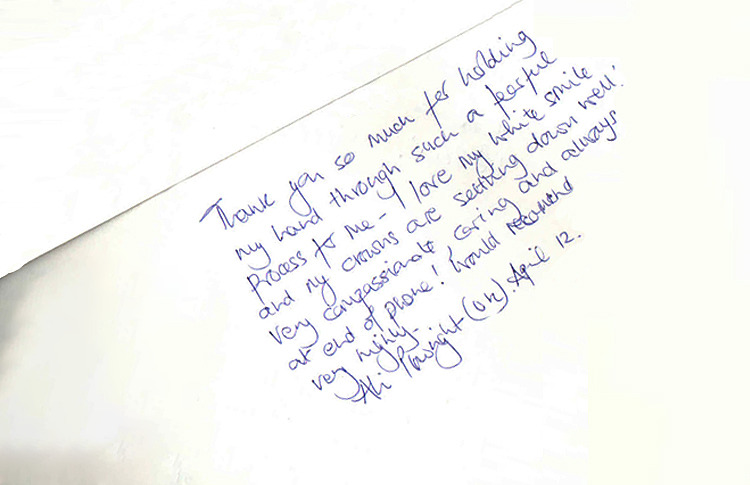 Thank you so much for holding
my hand through such a fearful
process to me - I love my white smile
and my crowns are settling down well!
Very compassionate, caring and always
at end of phone! Would recommend
very highly.
Ali (UK). April 12.